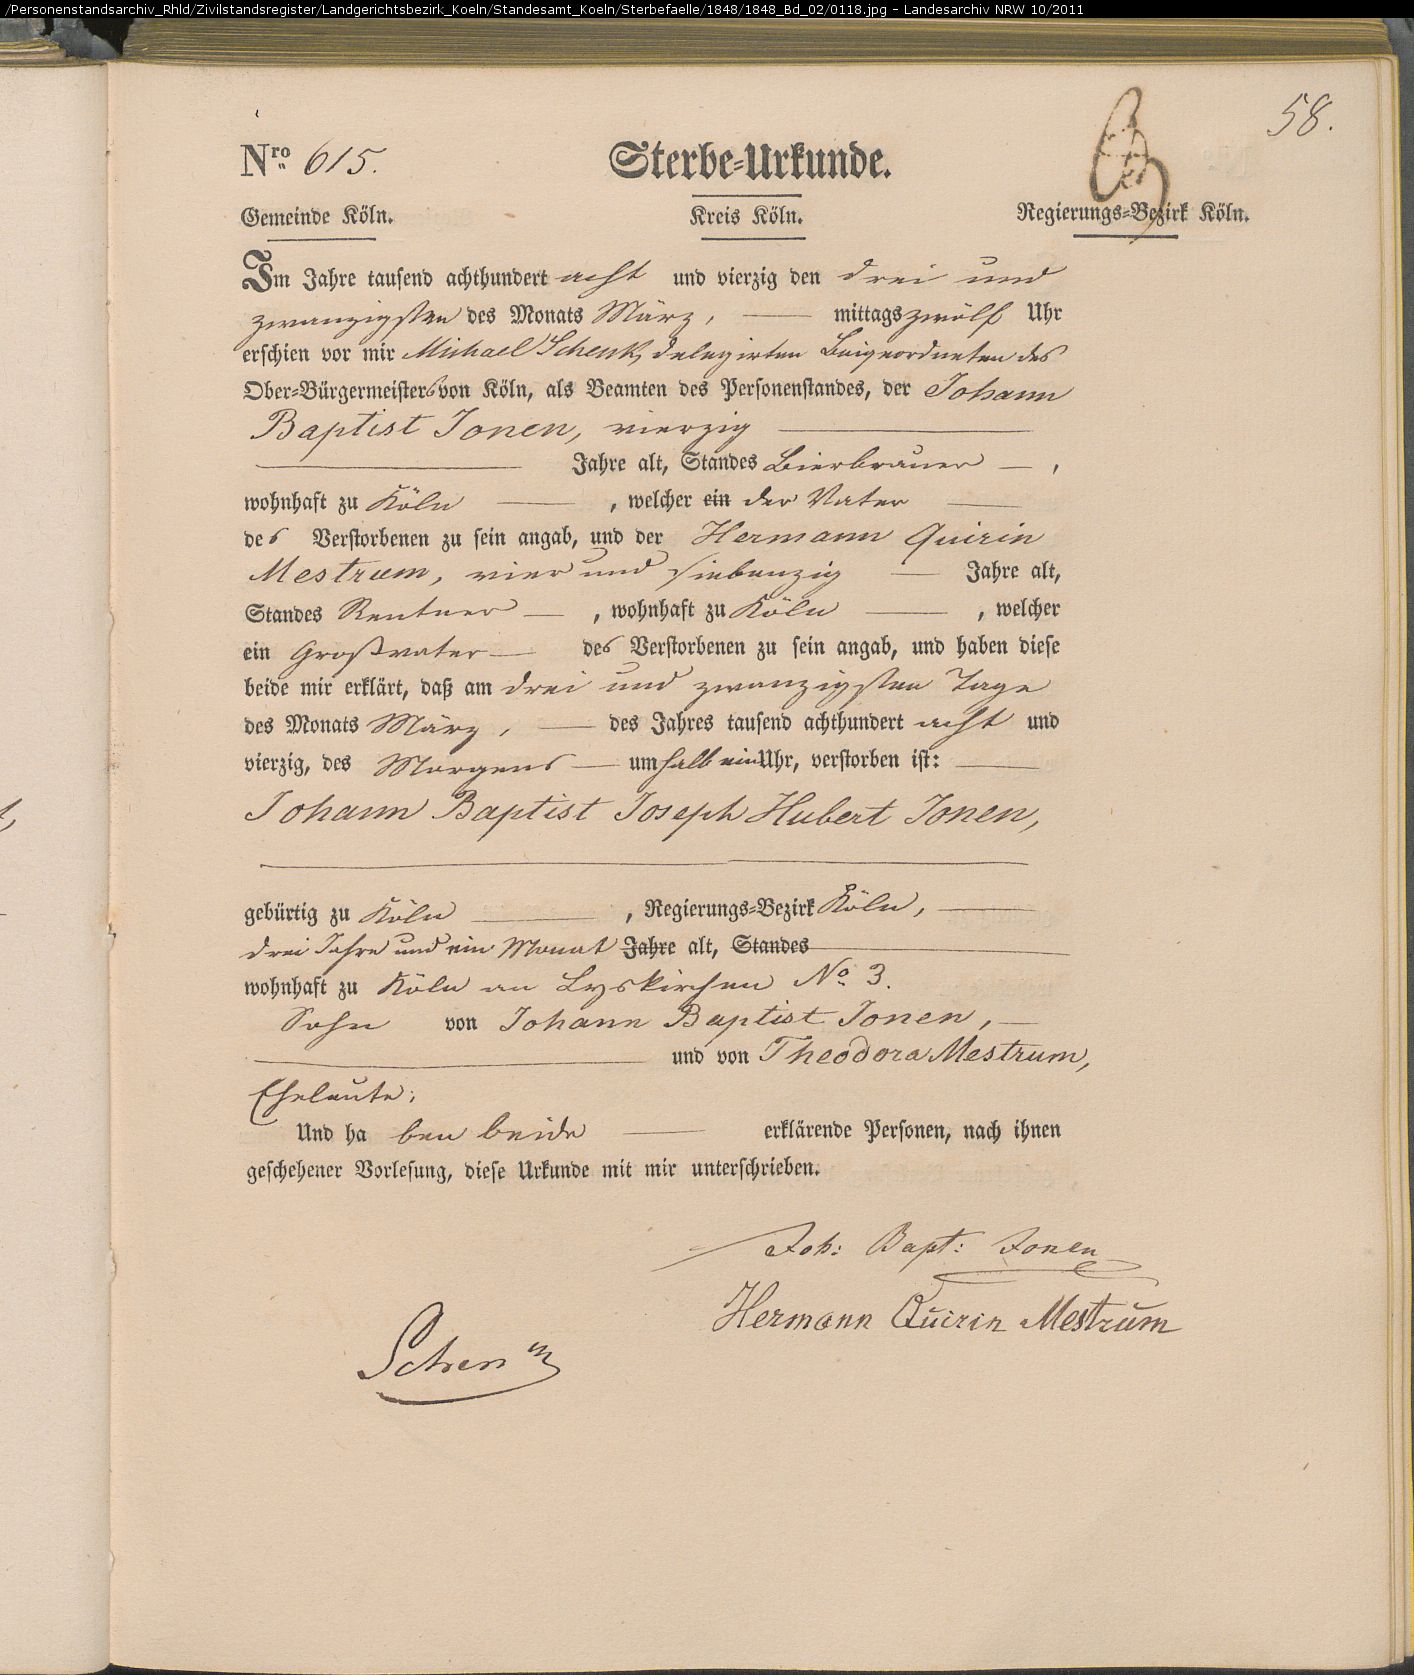 /Personenstandsarchiv_Rhld/Zivilstandsregister/Landgerichtsbezirk_Koeln/Standesamt_Koeln/Sterbefaelle/1848/1848_Bd_02/0118.jpg - Landesarchiv NRW 10/2011
58.
Nro 615. Sterbe-Urkunde.
Gemeinde Köln. Kreis Köln. Regierungs-Bezirk Köln.
Im Jahre tausend achthundert acht und vierzig den drei und
zwanzigsten des Monats März, mittags zwölf Uhr
erschien vor mir Michael Schenk, delegirten Beigeordneten des
Ober-Bürgermeisters von Köln, als Beamten des Personenstandes, der Johann
Baptist Jonen, vierzig
Jahre alt, Standes Bierbrauer,
wohnhaft zu Köln, welcher ein der Vater
des Verstorbenen zu sein angab, und der Hermann Quirin
Mestrum, vier und siebenzig Jahre alt,
Standes Rentner, wohnhaft zu Köln, welcher
ein Großvater des Verstorbenen zu sein angab, und haben diese
beide mir erklärt, daß am drei und zwanzigsten Tage
des Monats März, des Jahres tausend achthundert acht und
vierzig, des Morgens um halb ein Uhr, verstorben ist:
Johann Baptist Joseph Hubert Jonen,
gebürtig zu Köln, Regierungs-Bezirk Köln,
drei Jahre und ein Monat Jahre alt, Standes
wohnhaft zu Köln an Lyskirchen No. 3.
Sohn von Johann Baptist Jonen,
und von Theodora Mestrum,
Eheleute;
Und haben beide erklärende Personen, nach ihnen
geschehener Vorlesung, diese Urkunde mit mir unterschrieben.
Joh: Bapt: Jonen
Hermann Quirin Mestrum
Schenk